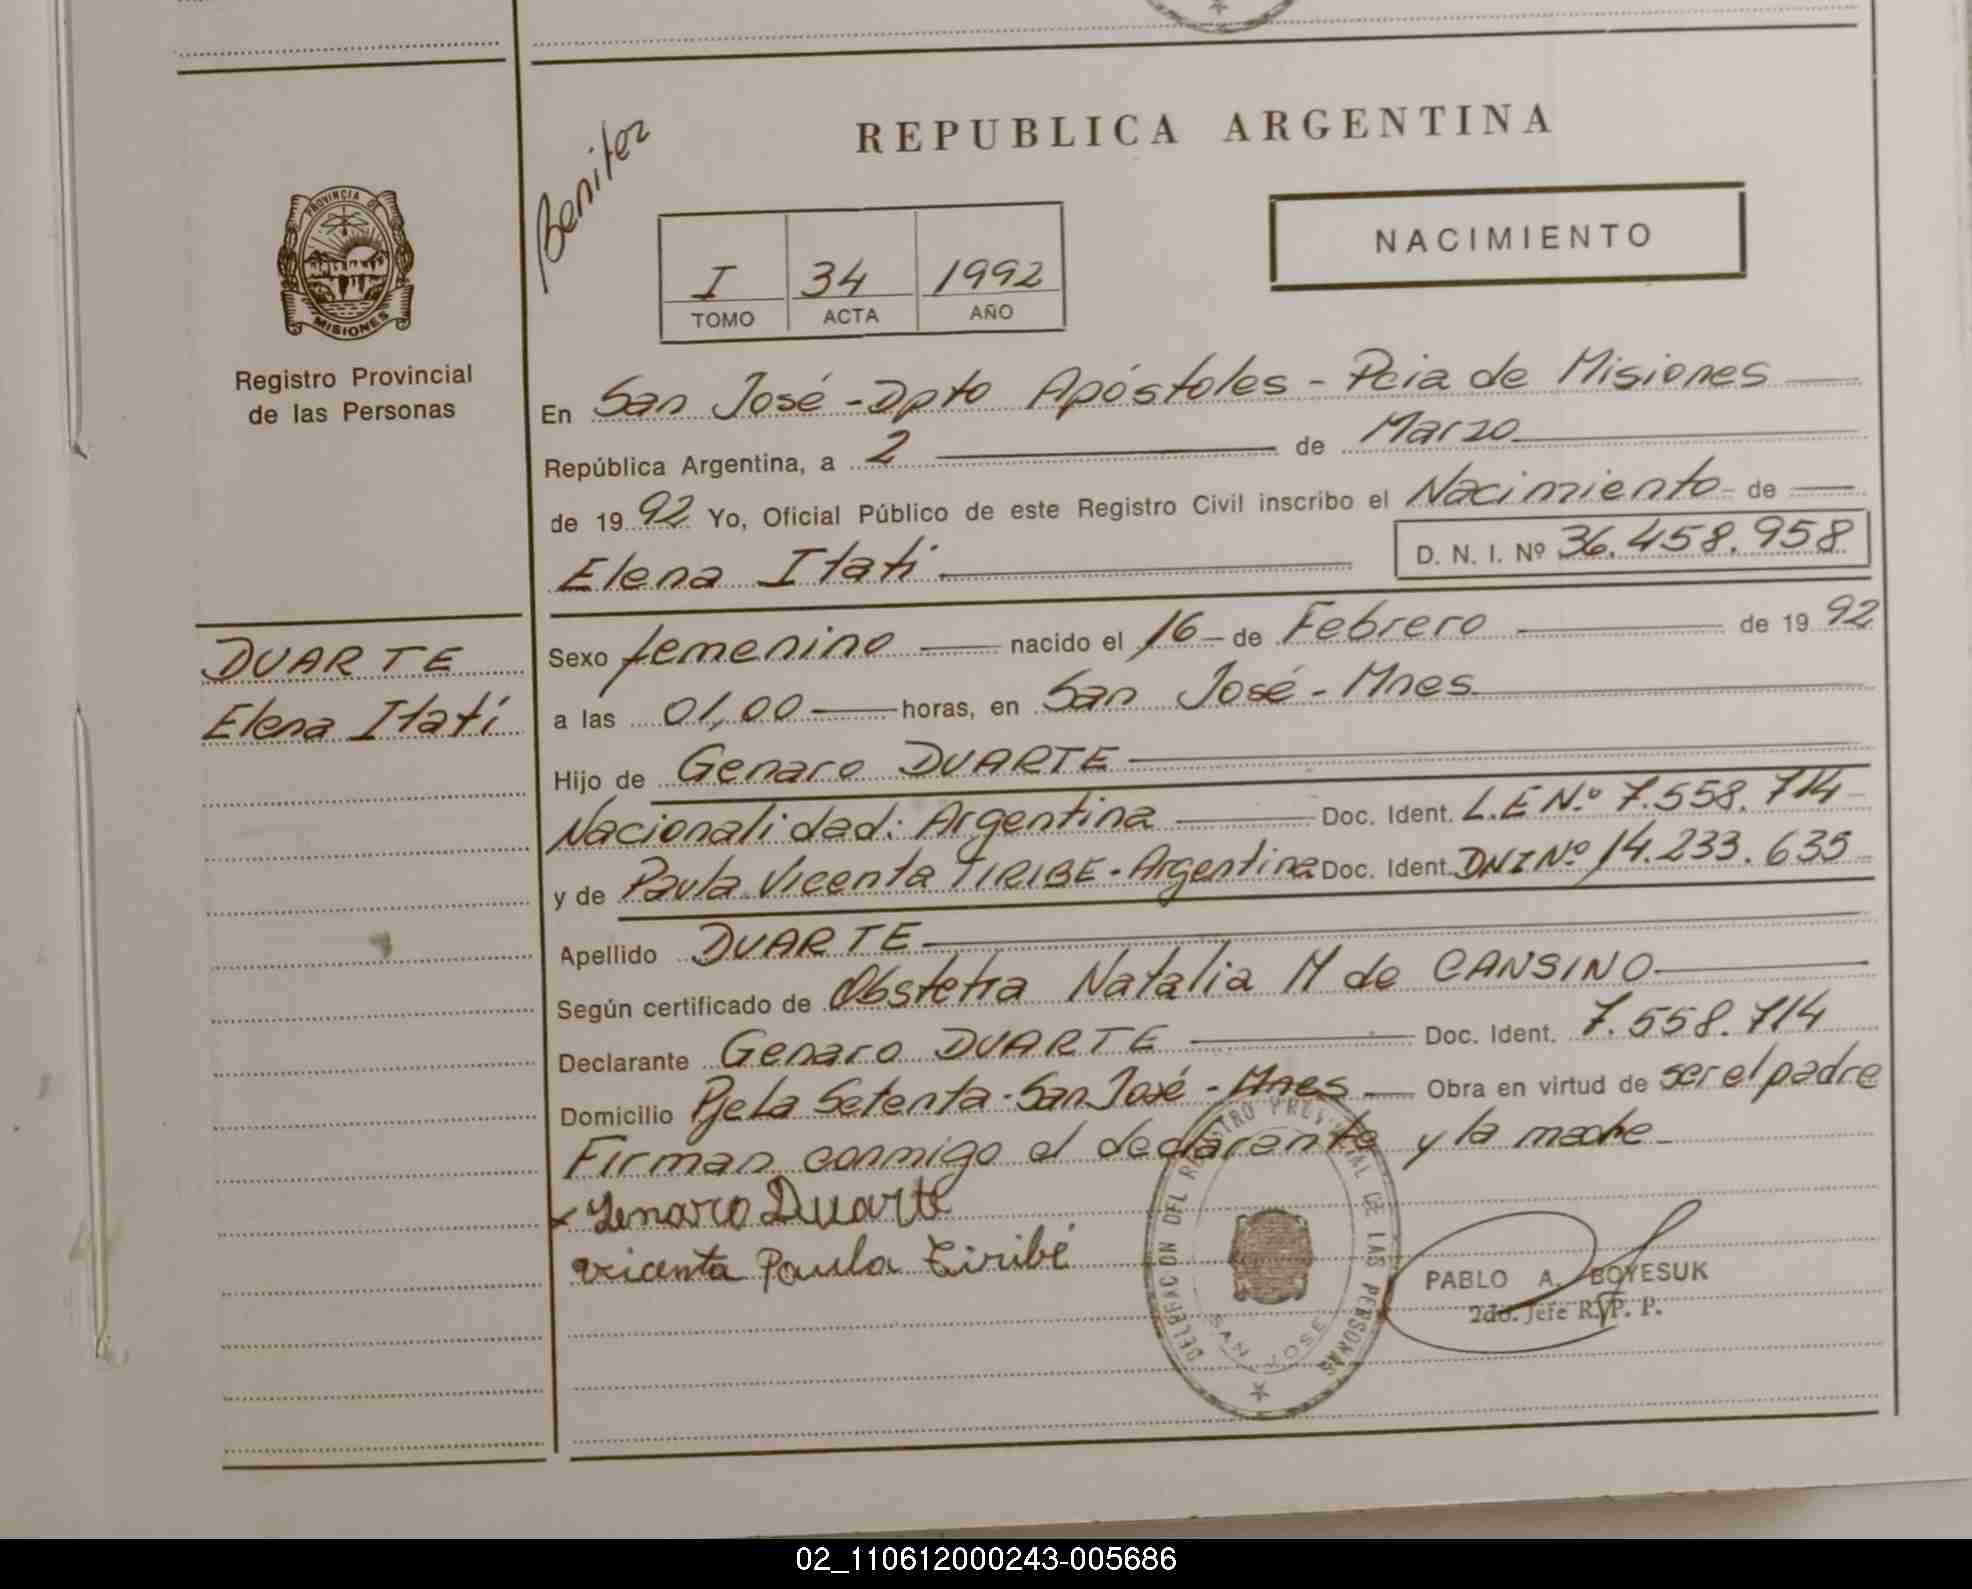 REPUBLICA ARGENTINA
Benitez
NACIMIENTO
I 34 1992
TOMO ACTA AÑO
PROVINCIA DE
MISIONES
Registro Provincial
de las Personas
En San José - Dpto Apóstoles - Pcia de Misiones
República Argentina, a 2 de Marzo
de 1992 Yo, Oficial Público de este Registro Civil inscribo el Nacimiento de
Elena Itatí D. N. I. Nº 36.458.958
DUARTE
Elena Itatí
Sexo femenino nacido el 16 de Febrero de 1992
a las 01,00 horas, en San José - Mnes
Hijo de Genaro DUARTE
Nacionalidad: Argentina Doc. Ident. L.E Nº 7.558.714
y de Paula Vicenta TIRIBE - Argentina Doc. Ident. DNI Nº 14.233.635
Apellido DUARTE
Según certificado de Obstetra Natalia M de CANSINO
Declarante Genaro DUARTE Doc. Ident. 7.558.714
Domicilio Pje La Setenta - San José - Mnes Obra en virtud de ser el padre
Firman conmigo el declarante y la madre
x Genaro Duarte
vicenta Paula Tiribé
DELEGACION DEL REGISTRO PROVINCIAL DE LAS PERSONAS
SAN JOSE
PABLO A. BOYESUK
2do. Jefe R. P. P.
02_110612000243-005686